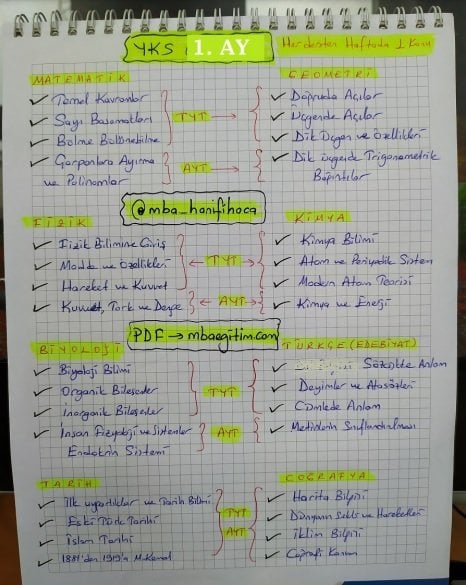 YKS 1. AY
Her dersten Haftada 1 Konu
MATEMATİK
✓ Temel Kavramlar
✓ Sayı Basamakları
✓ Bölme Bölünebilme
✓ Çarpanlara Ayırma
ve Polinomlar
TYT
AYT
GEOMETRİ
✓ Doğruda Açılar
✓ Üçgende Açılar
✓ Dik Üçgen ve Özellikleri
✓ Dik üçgende Trigonometrik
Bağıntılar
@mba_hanifihoca
FİZİK
✓ Fizik Bilimine Giriş
✓ Madde ve Özellikleri
✓ Hareket ve Kuvvet
✓ Kuvvet, Tork ve Denge
TYT
AYT
KİMYA
✓ Kimya Bilimi
✓ Atom ve Periyodik Sistem
✓ Modern Atom Teorisi
✓ Kimya ve Enerji
PDF → mbaegitim.com
BİYOLOJİ
✓ Biyoloji Bilimi
✓ Organik Bileşenler
✓ İnorganik Bileşenler
✓ İnsan Fizyolojisi ve Sistemler
Endokrin Sistemi
TYT
AYT
TÜRKÇE (EDEBİYAT)
✓ Sözcükte Anlam
✓ Deyimler ve Atasözleri
✓ Cümlede Anlam
✓ Metinlerin Sınıflandırılması
TARİH
✓ İlk uygarlıklar ve Tarih Bilimi
✓ Eski Türk Tarihi
✓ İslam Tarihi
✓ 1881'den 1919'a M.Kemal
TYT
AYT
COĞRAFYA
✓ Harita Bilgisi
✓ Dünyanın Şekli ve Hareketleri
✓ İklim Bilgisi
✓ Coğrafi Konum